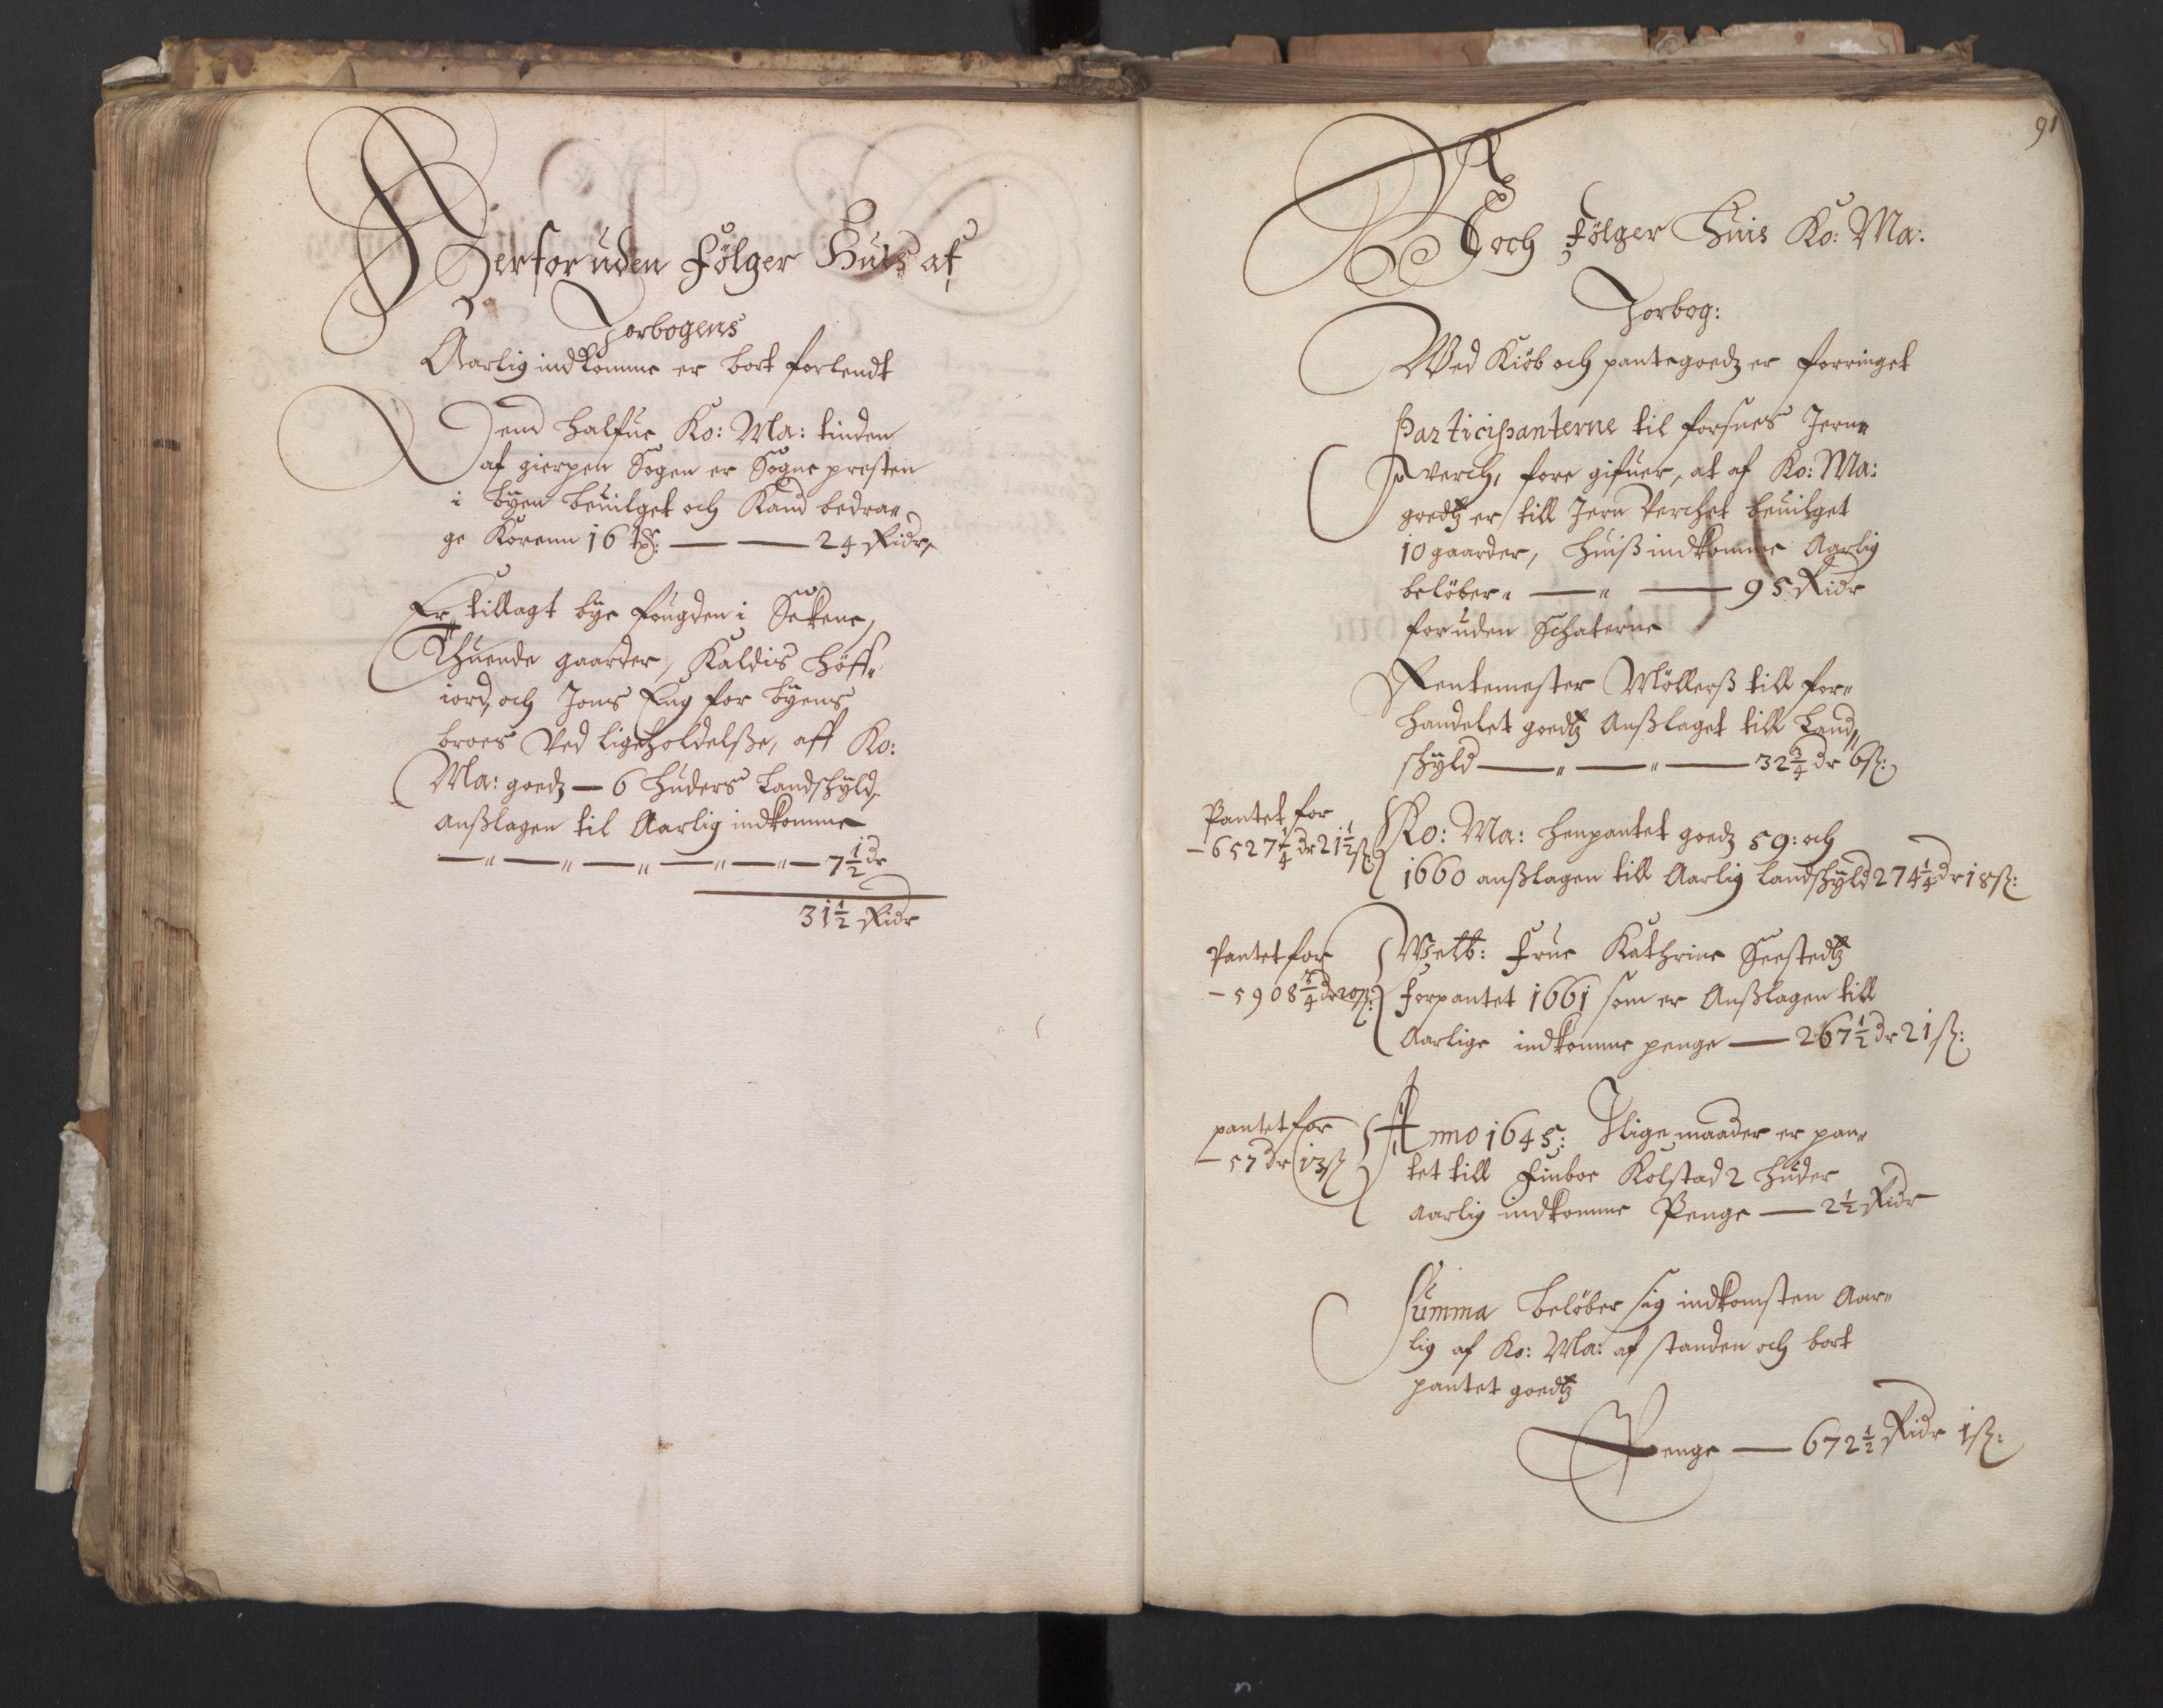 Herfor uden Følger Huis af
Jorbogens
Aarlig indkomme er bort forlendt
Dend halfue Ko: Ma: tinden
af gierpen Sogen er Sogne presten
i byen beuilget och Kand bedra„
ge Korenn 16 tr: — — 24 Ridr,
Er tillagt bye fougden i
Thuende gaarder, Kaldis Høff„
iord, och Jons Eng for byens
broes Ved ligeholdelsse, aff Ko:
Ma: goedz — 6 huders Landschyld,
anslagen til Aarlig indkomme
— „ — „ — „ — „ — „ — 7½ dr
31½ Ridr
91
Noch Følger Huis Ko: Ma:
Jorbog:
Wed Kiöb och pantegoedz er forringet
Participanterne til forsnes Jern„
verch, fore gifuer, at af Ko: Ma:
goedtz er till Jern Verchet beuilget
10 gaarder, huiss indkomme Aarlig
beløber „ — „ — 95 Ridr
foruden Schaterne
Rentemester Möllerss till for„
handelet goedtz Anslaget till Land„
schyld — „ — „ — 32¾ dr 6ß:
Pantet for
— 6527¼ dr 21½ ß:
Ko: Ma: henpantet goedz 59: och
1660 anslagen till Aarlig landschyld 274¼ dr 18ß:
Pantet for
— 5908¾ dr 20ß:
Welb: Frue Kathrine Seestedtz
Forpantet 1661 som er Anslagen till
Aarlige indkomme penge — 267½ dr 21ß:
pantet for
— 57 dr 13ß
Anno 1645: Jlige maader er pan„
tet till Finboe Kolstad 2 huder
aarlig indkomme Penge — 2½ Ridr
Summa beløber sig indkomsten Aar„
lig af Ko: Ma: af standen och bort
pantet goedtz
Penge — 672½ Ridr 1ß: